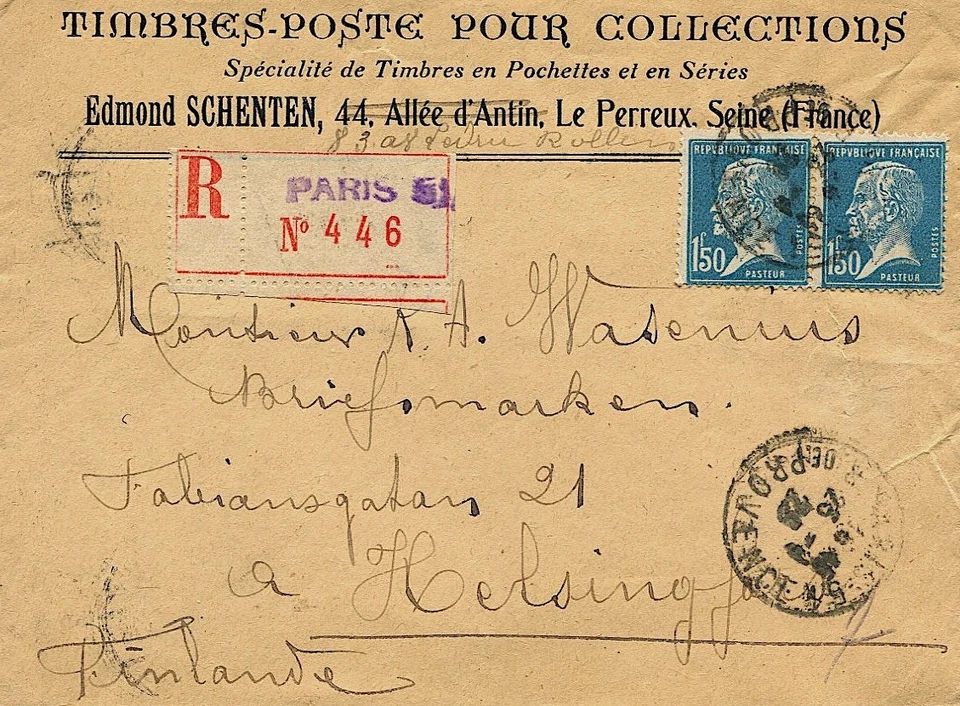 TIMBRES-POSTE POUR COLLECTIONS
Spécialité de Timbres en Pochettes et en Séries
Edmond SCHENTEN, 44, Allée d'Antin, Le Perreux, Seine (France)
83 Ledru Rollin
R
PARIS 51
Nº 446
REPUBLIQUE FRANÇAISE
1F50
POSTES
PASTEUR
REPUBLIQUE FRANÇAISE
1F50
POSTES
PASTEUR
Monsieur A. A. Wasenius
Briefmarken.
Fabiansgatan 21
a Helsingfors
Finlande
PARIS
R. DE PROVENCE